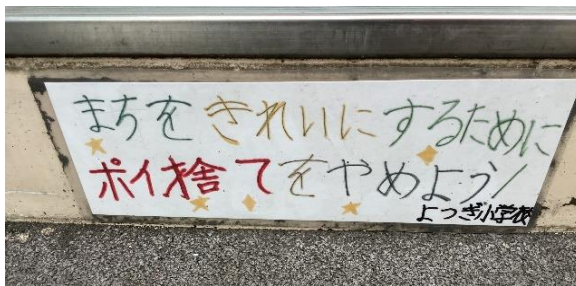 まちをきれいにするために
ポイ捨てをやめよう!
よつぎ小学校